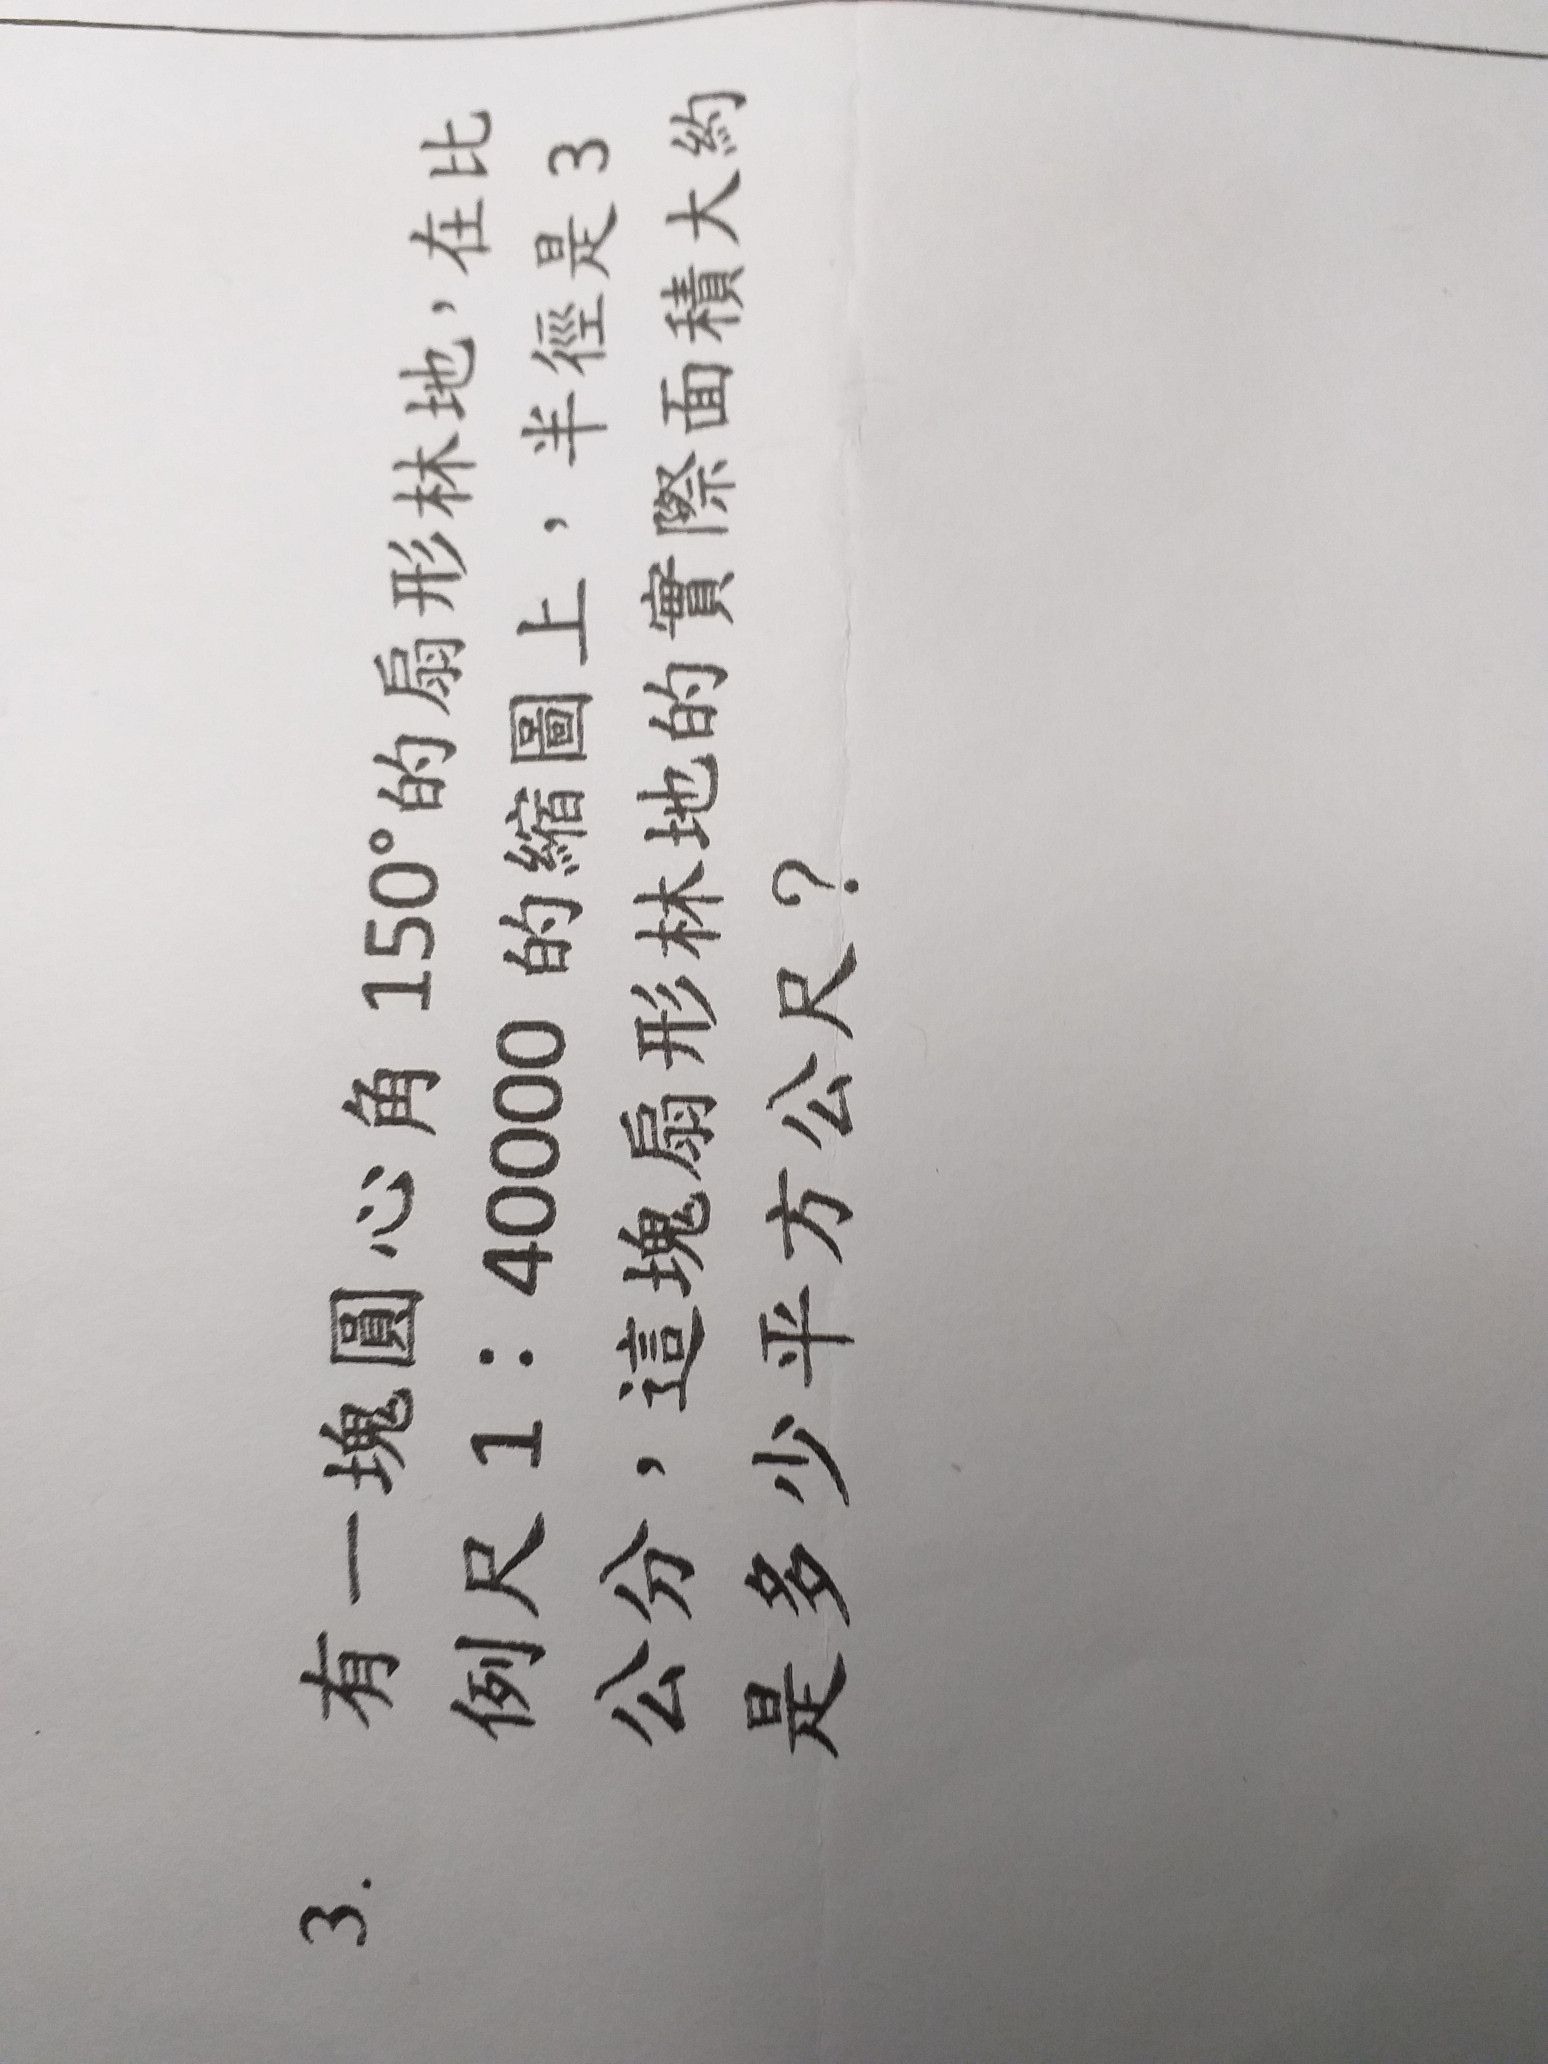 3. 有一塊圓心角 150°的扇形林地，在比
例尺 1：40000 的縮圖上，半徑是 3
公分，這塊扇形林地的實際面積大約
是多少平方公尺？